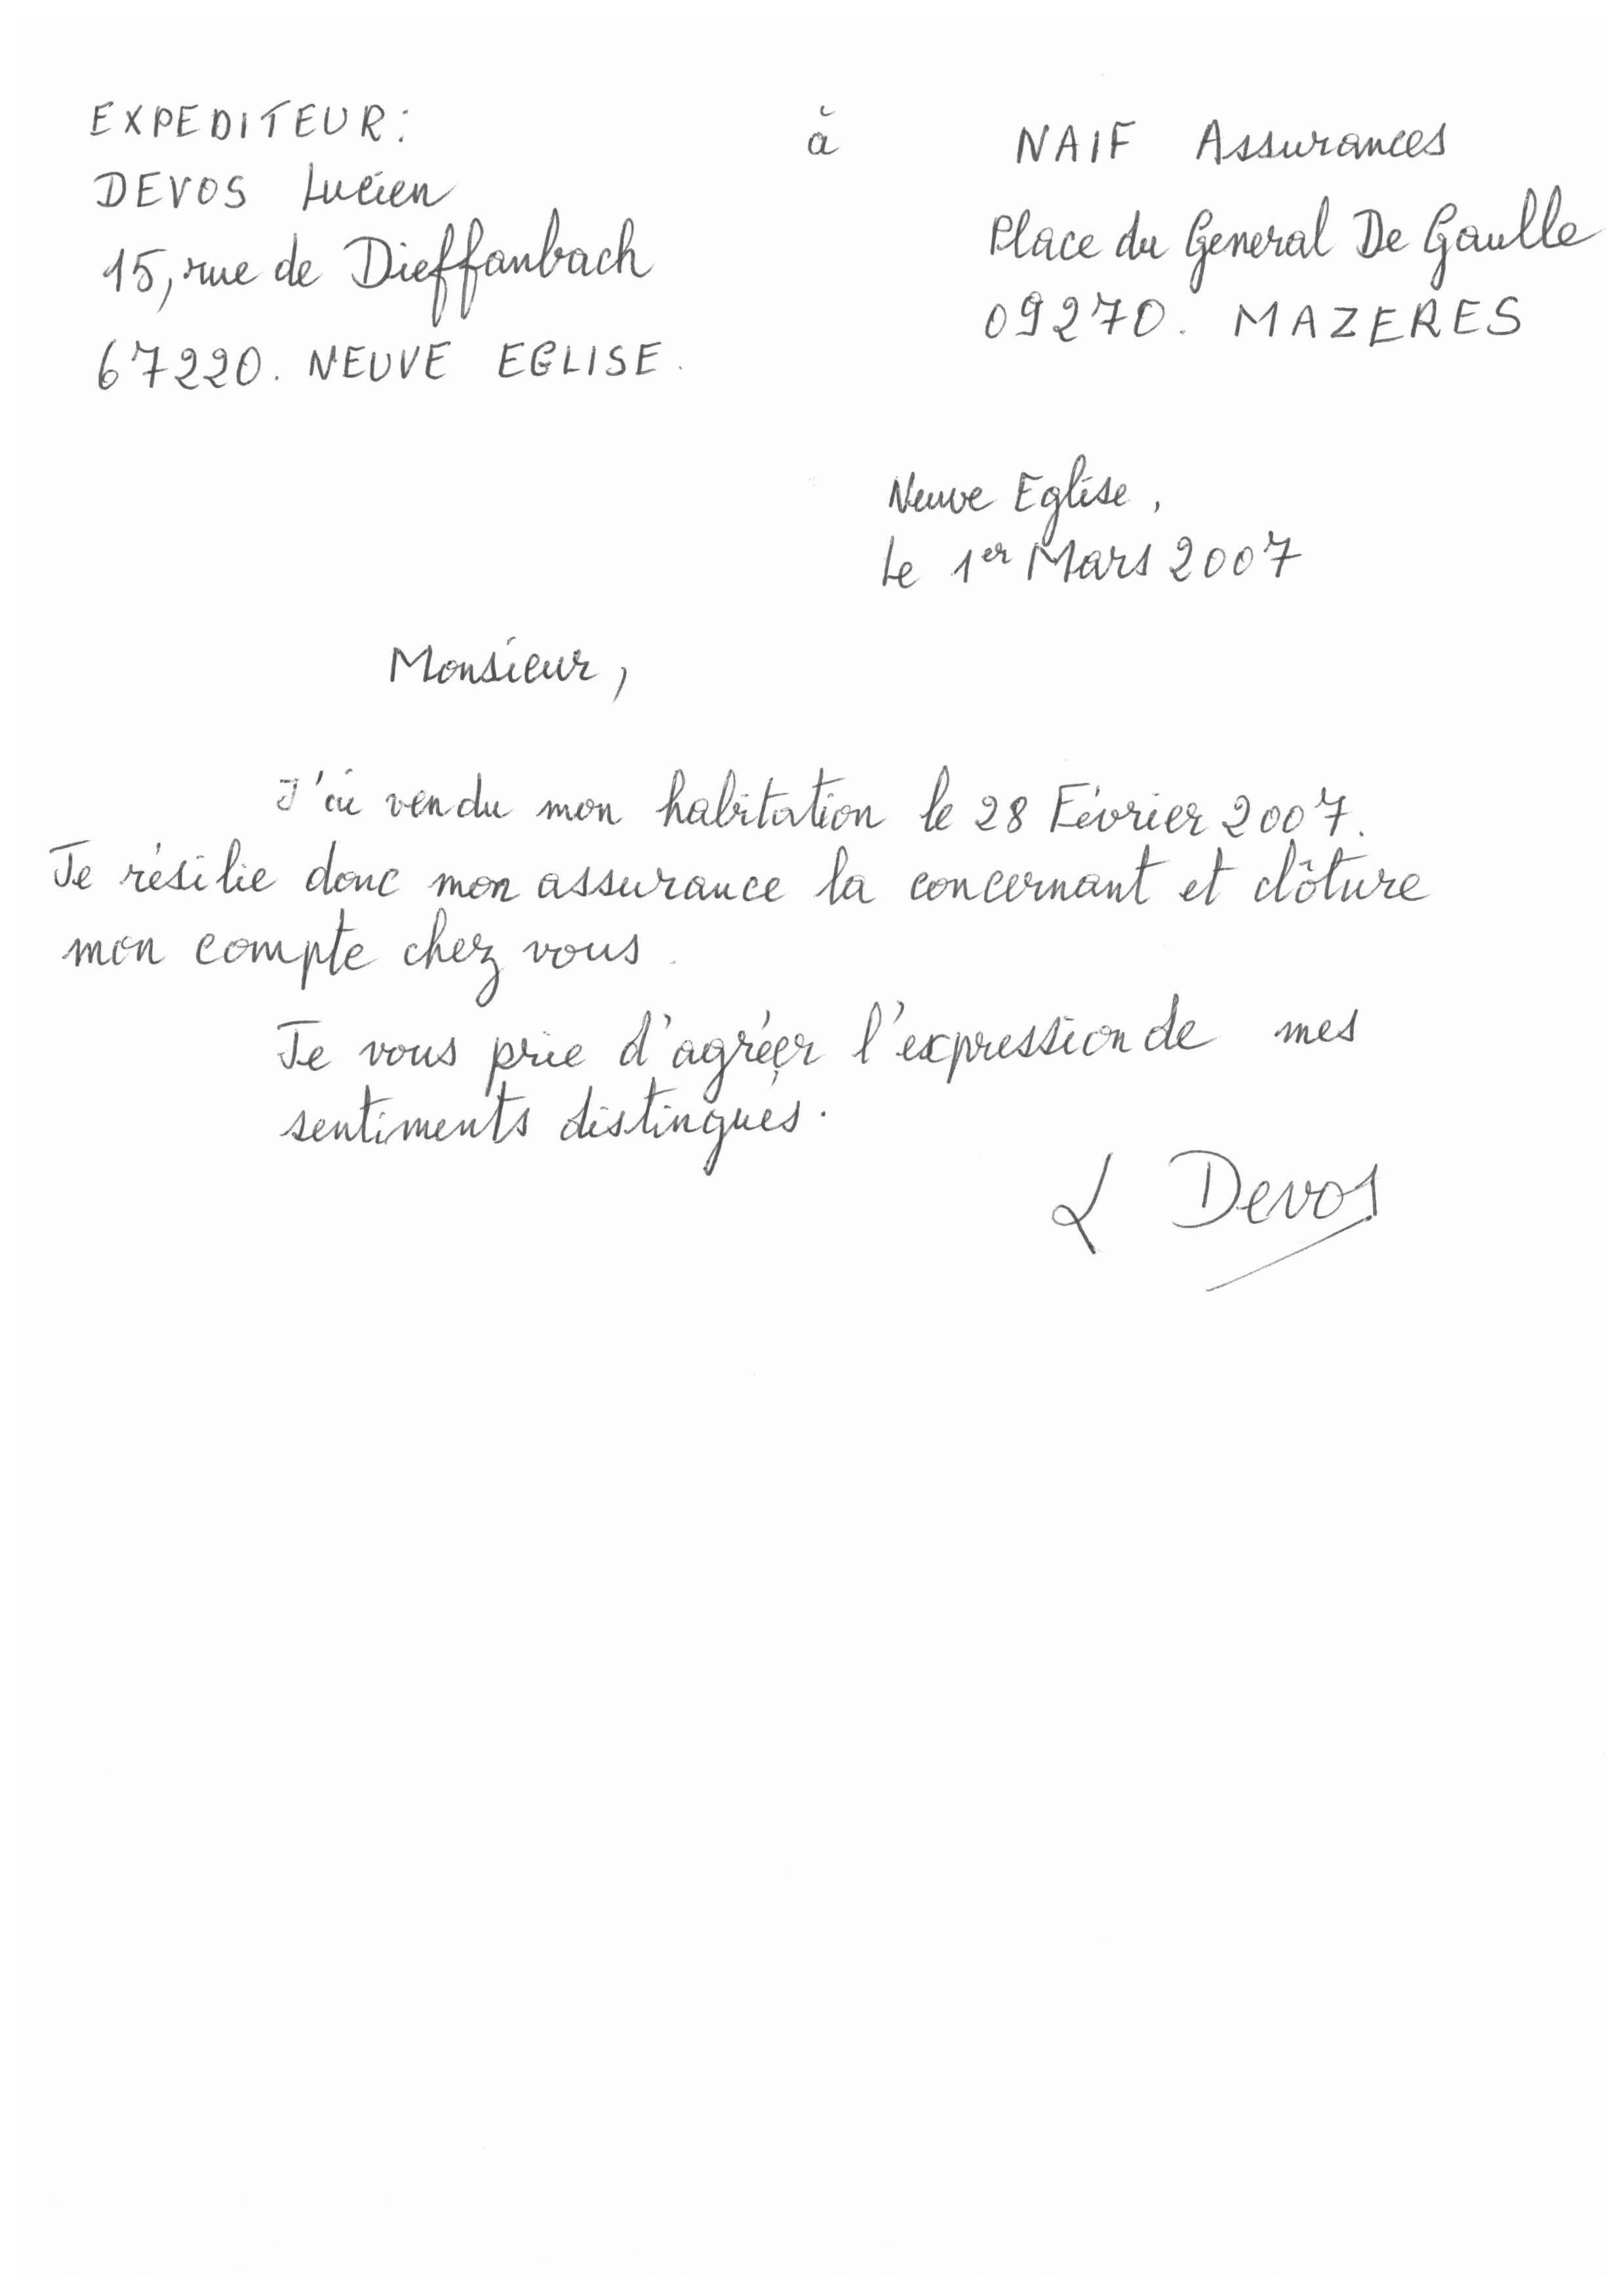 EXPEDITEUR:
DEVOS Lucien
15, rue de Dieffanbach
67220. NEUVE EGLISE.
à
NAIF Assurances
Place du General De Gaulle
09270. MAZERES
Neuve Eglise,
Le 1er Mars 2007
Monsieur,
J'ai vendu mon habitation le 28 Février 2007.
Je résilie donc mon assurance la concernant et clôture
mon compte chez vous.
Je vous prie d'agréer l'expression de mes
sentiments distingués.
L Devos